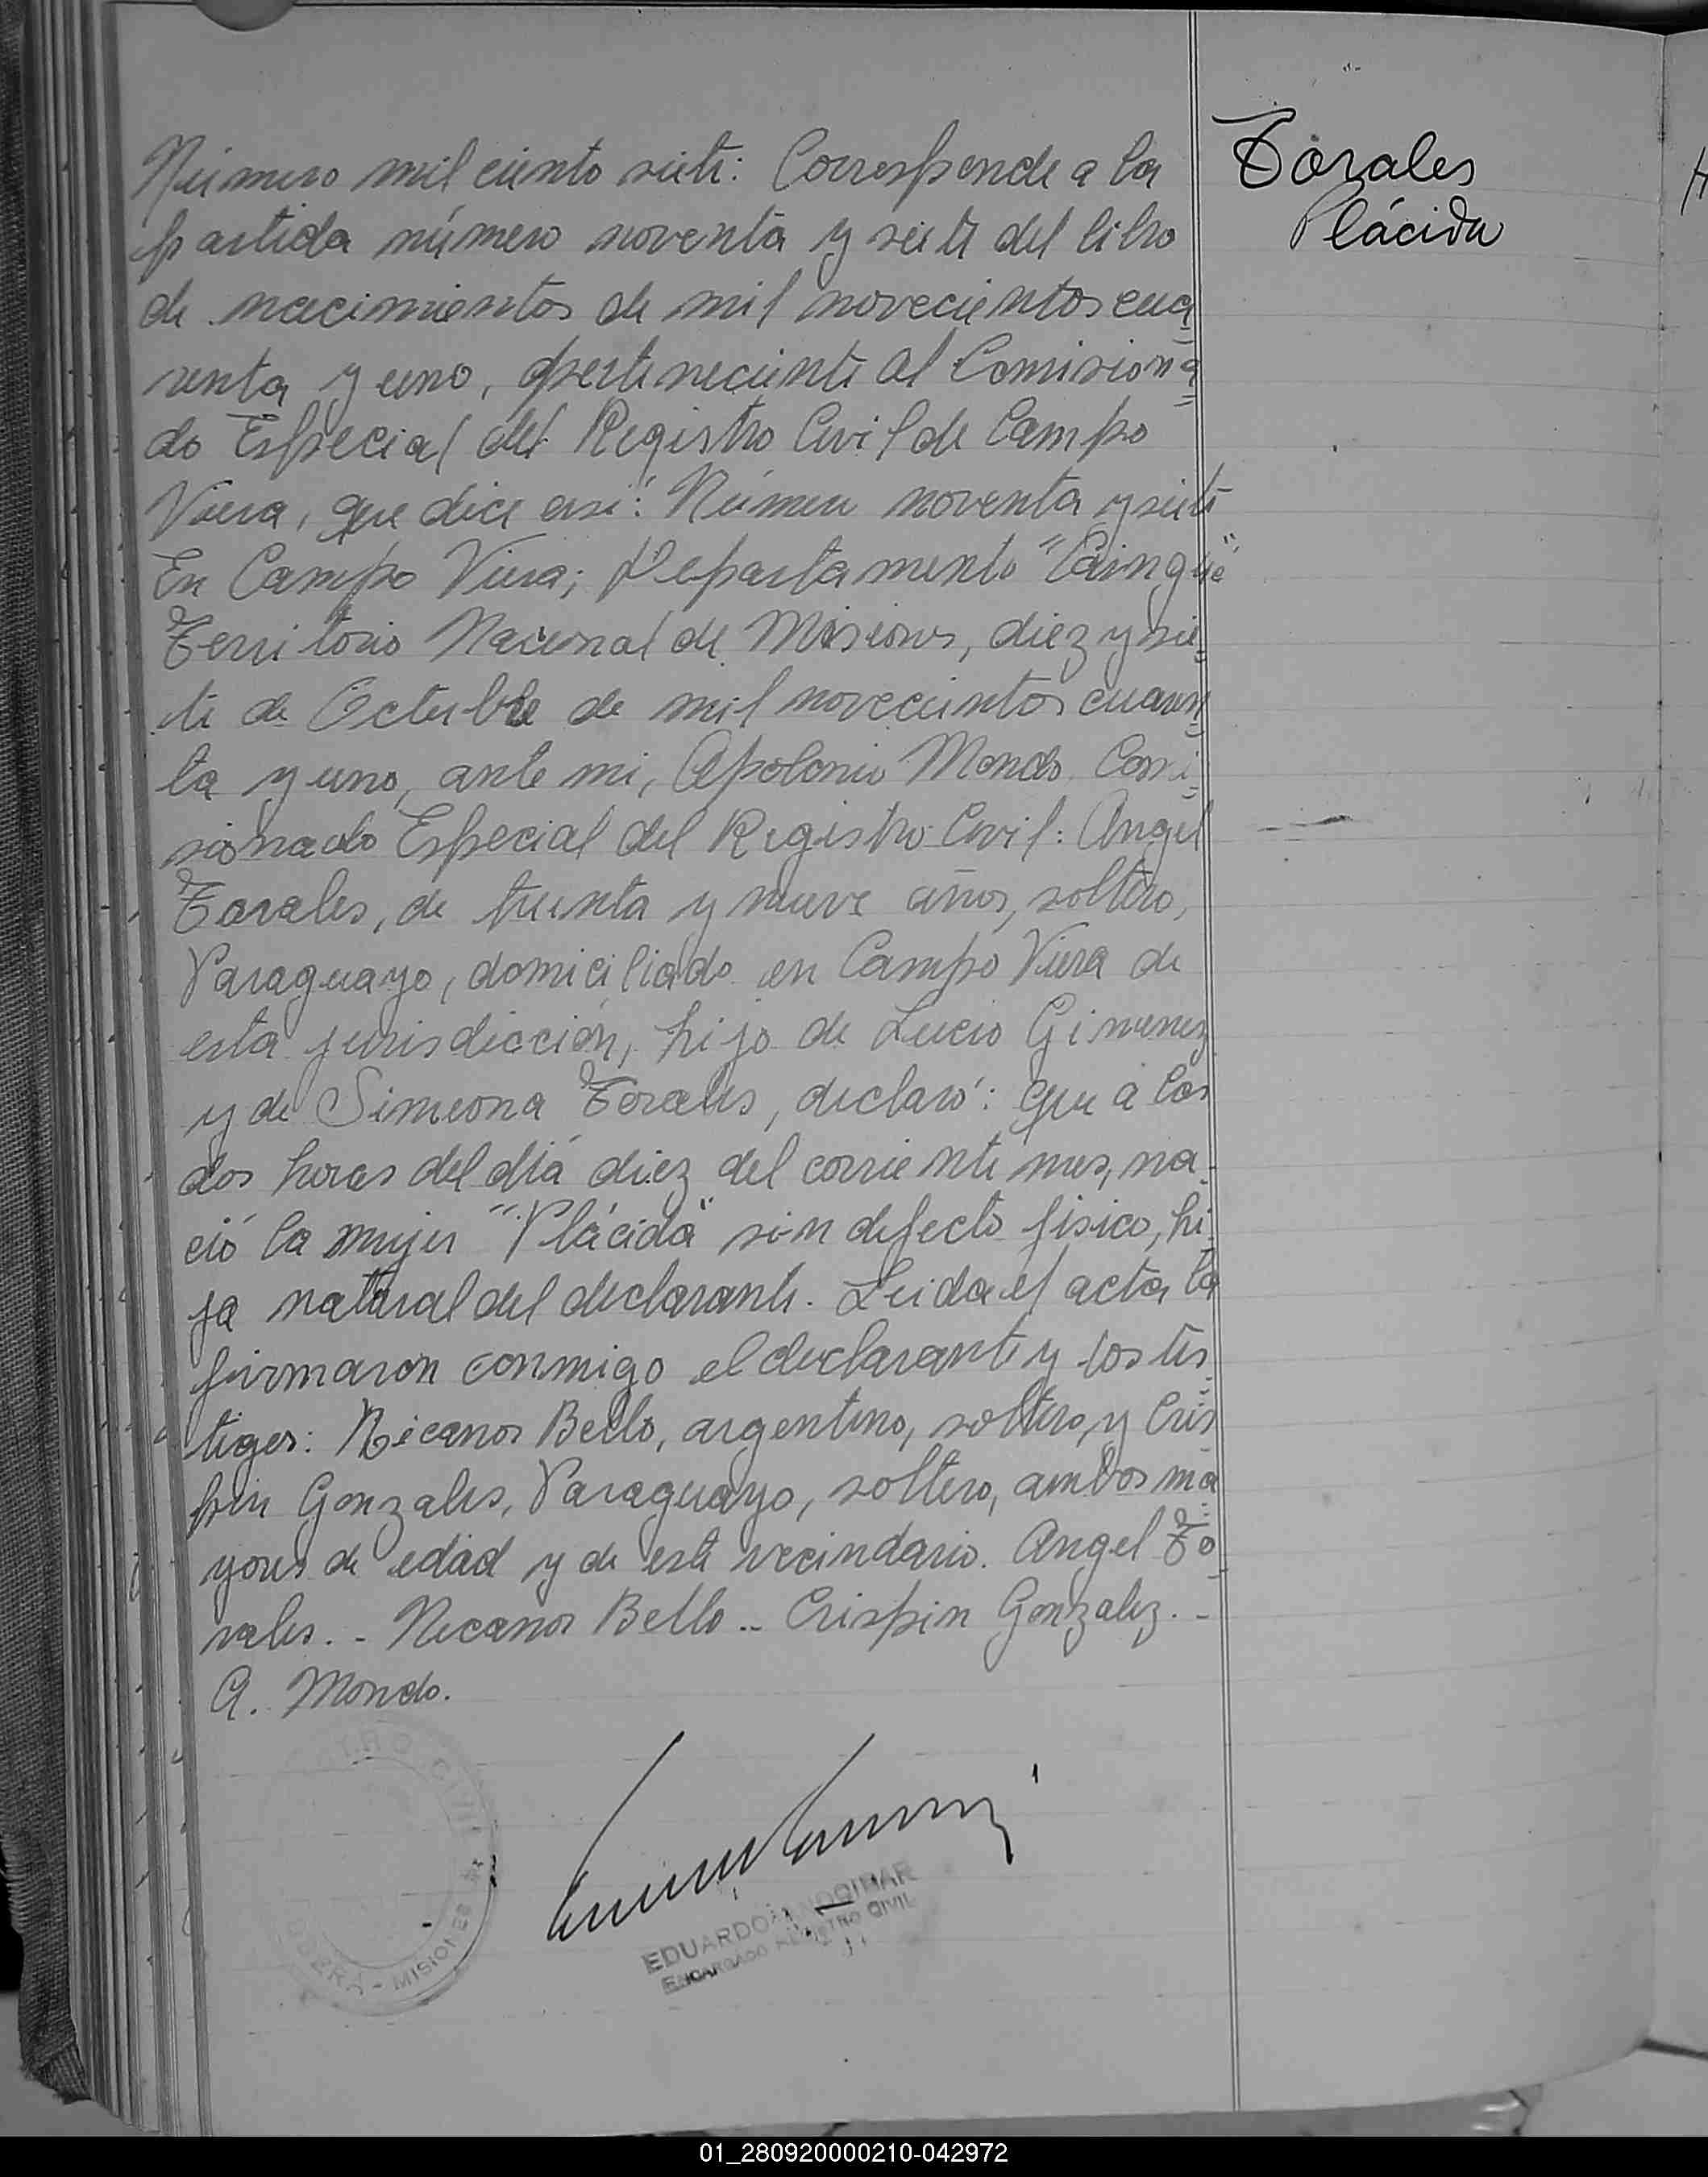 Torales
Plácida
Número mil ciento siete: Corresponde a la
partida número noventa y siete del libro
de nacimientos de mil novecientos cua
renta y uno, perteneciente al Comisiona
do Especial del Registro Civil de Campo
Viera, que dice así: Número noventa y siete
En Campo Viera; Departamento "Cainguá"
Territorio Nacional de Misiones, diez y sie
te de Octubre de mil novecientos cuaren
ta y uno, ante mi, Apolonio Mondo Comi
sionado Especial del Registro Civil: Angel
Torales, de treinta y nueve años, soltero,
Paraguayo, domiciliado en Campo Viera de
esta jurisdicción, hijo de Lucio Gimenez
y de Simeona Torales, declaró: que a las
dos horas del día diez del corriente mes, na
ció la mujer "Plácida" sin defecto físico, hi
ja natural del declarante. Leida el acta la
firmaron conmigo el declarante y los tes
tigos: Nicanor Bello, argentino, soltero, y Cris
pin Gonzales, Paraguayo, soltero, ambos ma
yores de edad y de este vecindario. Angel To
rales. - Nicanor Bello -- Crispin Gonzalez. -
A. Mondo.
CIVIL
OBERÁ - MISIONES
EDUARDO
ENCARGADO REGISTRO CIVIL
01_280920000210-042972